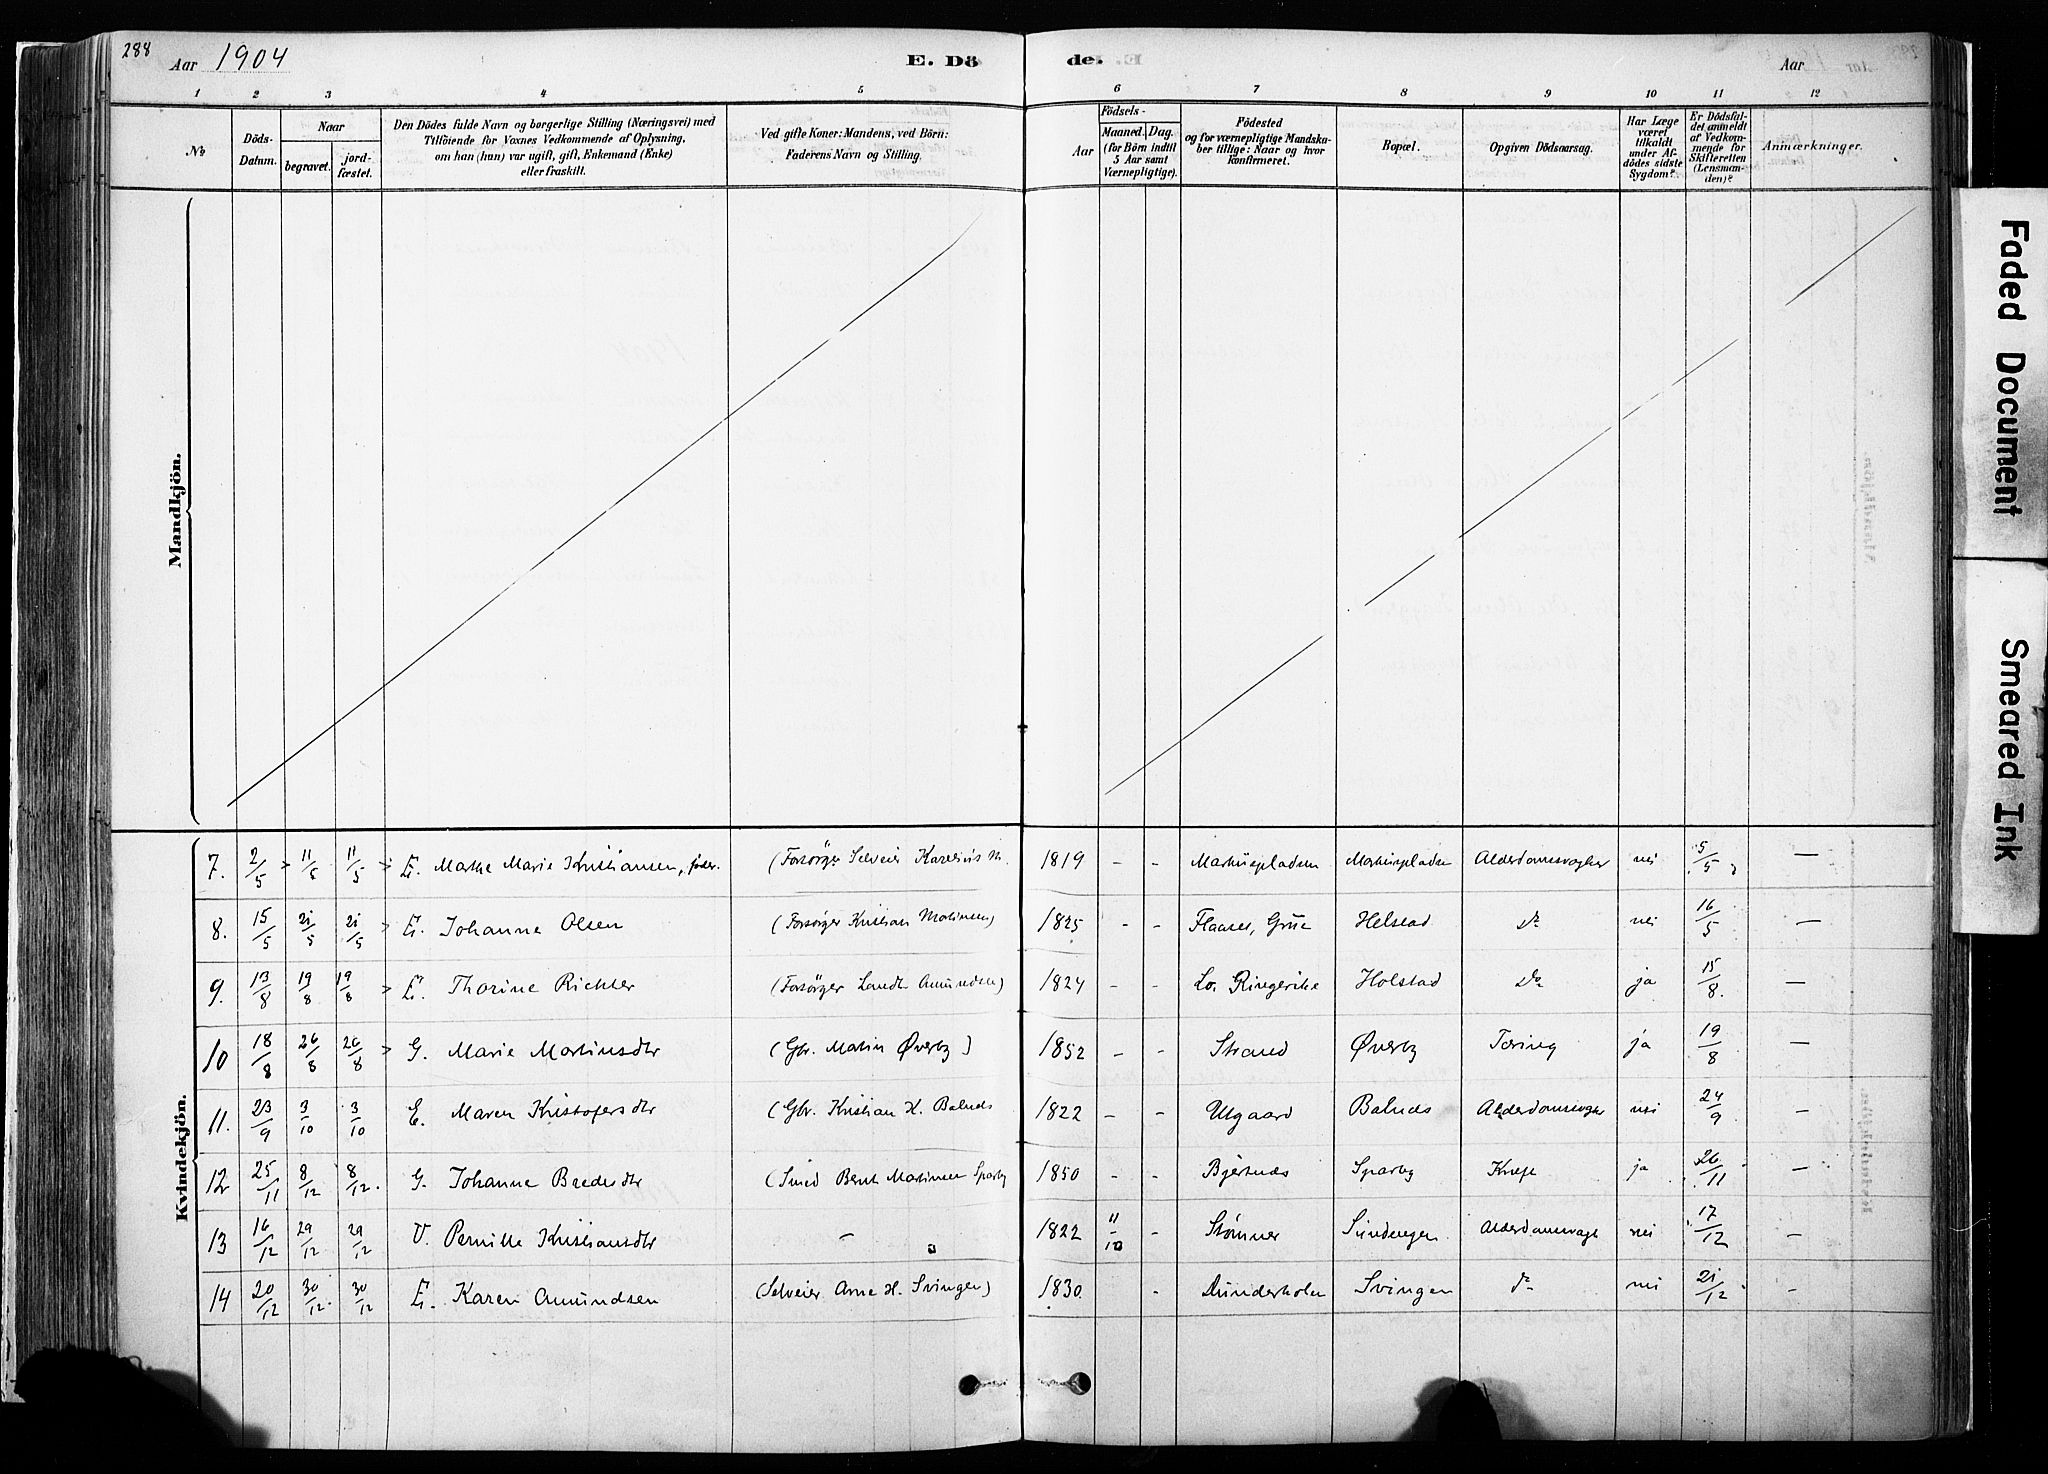 288
Aar 1904
E. Dö
de.
Aar
1 2 3 4 5 6 7 8 9 10 11 12
No
Döds-Datum.
Naar
begravet.
jord-fæstet.
Den Dödes fulde Navn og borgerlige Stilling (Næringsvei) med
Tilföiende for Voxnes Vedkommende af Oplysning,
om han (hun) var ugift, gift, Enkemand (Enke)
eller fraskilt.
Ved gifte Koner: Mandens, ved Börn:
Faderens Navn og Stilling.
Aar
Födsels-
Maaned. Dag.
(for Börn indtil
5 Aar samt
Værnepligtige).
Födested
og for værnepligtige Mandska-
ber tillige: Naar og hvor
konfirmeret.
Bopæl.
Opgiven Dödsaarsag.
Har Læge
været
tilkaldt
under Af-
dödes sidste
Sygdom?
Er Dödsfal-
det anmeldt
af Vedkom-
mende for
Skifteretten
(Lensman-
den)?
Anmærkninger.
Mandkjön.
Kvindekjön.
7. 2/5 11/5 11/5 E. Marthe Marie Kristiansen, (Forsørger Selveier Karelius M. 1819 - - Markuspladsen Markuspladsen Alderdomssvaghed nei 5/5 -
8. 15/5 21/5 21/5 E. Johanne Olsen (Forsørger Kristian Martinsen) 1825 - - Flaaset, Grue Helstad do nei 16/5 -
9. 13/8 19/8 19/8 E. Thorine Richter (Forsørger Landh. Amundsen) 1824 - - Lo. Ringerike Holstad do ja 15/8. -
10 18/8 26/8 26/8 G. Marie Martinsdtr (Gbr. Martin Øverby) 1852 - - Strand Øverby Tæring ja 19/8 -
11. 23/9 3/10 3/10 E. Maren Kristofersdtr (Gbr. Kristian K. Balnds 1822 - Utgaard Balnds Alderdomssvaghed nei 24/9 -
12 25/11 8/12 8/12. G. Johanne Bredesdtr (Smed Bernt Martinsen Sparby 1850 - - Bjertnds Sparby Kræft ja 26/11 -
13 16/12 29/12 29/12 U. Pernille Kristiansdtr - 1822 11/10 - Stømner Sundengen Alderdomssvagh nei 17/12 -
14 20/12 30/12. 30/12 E. Karen Amundsen (Selveier Arne H. Svingen) 1830. - Dunderholen Svingen do nei 21/12 -
Faded Document
Smeared Ink